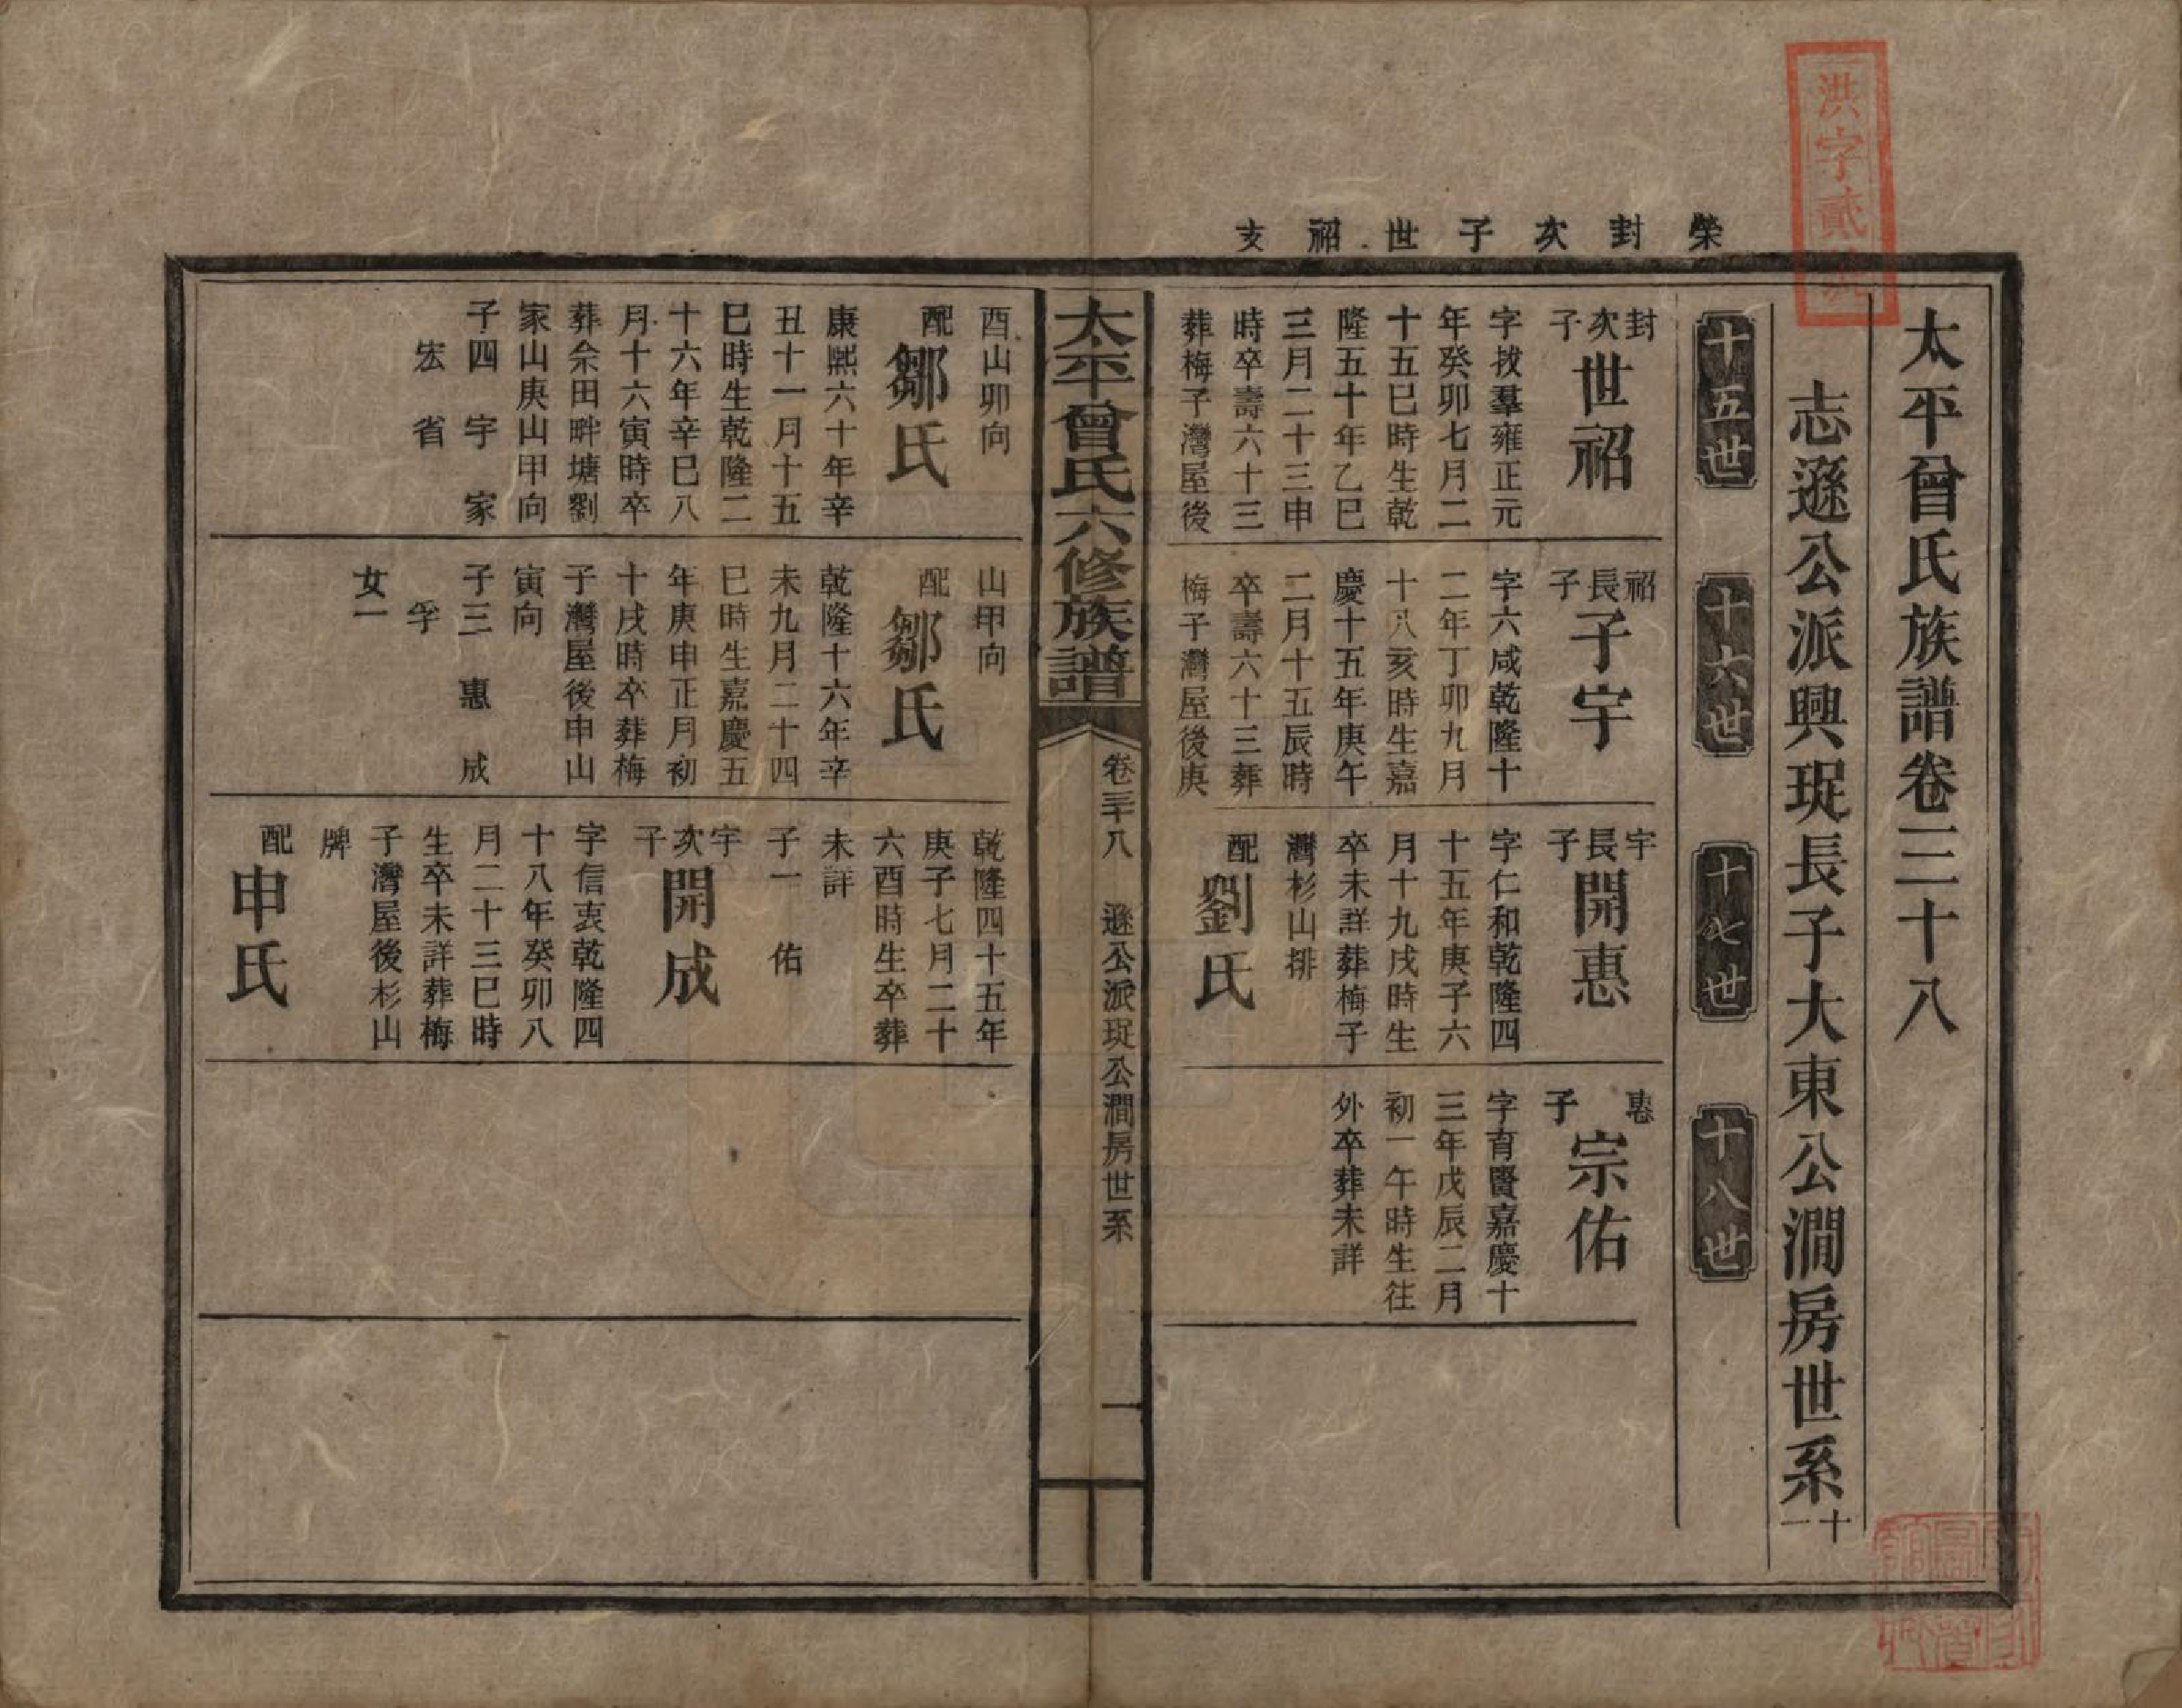 太平曾氏族譜卷三十八
志遜公派興珿長子大東公澗房世系十一
榮封次子世袑支
十五世
十六世
十七世
十八世
封次子世袑
字拔羣雍正元
年癸卯七月二
十五巳時生乾
隆五十年乙巳
三月二十三申
時卒壽六十三
葬梅子灣屋後
酉山卯向
配鄒氏
康熙六十年辛
丑十一月十五
巳時生乾隆二
十六年辛巳八
月十六寅時卒
葬佘田畔塘劉
家山庚山甲向
子四 宇 家
宏 省
袑長子子宇
字六咸乾隆十
二年丁卯九月
十八亥時生嘉
慶十五年庚午
二月十五辰時
卒壽六十三葬
梅子灣屋後庚
山甲向
配鄒氏
乾隆十六年辛
未九月二十四
巳時生嘉慶五
年庚申正月初
十戌時卒葬梅
子灣屋後申山
寅向
子三 惠 成
孚
女一
宇長子開惠
字仁和乾隆四
十五年庚子六
月十九戌時生
卒未詳葬梅子
灣杉山排
配劉氏
乾隆四十五年
庚子七月二十
六酉時生卒葬
未詳
子一 佑
宇次子開成
字信衷乾隆四
十八年癸卯八
月二十三巳時
生卒未詳葬梅
子灣屋後杉山
牌
配申氏
惠子宗佑
字育賢嘉慶十
三年戊辰二月
初一午時生往
外卒葬未詳
太平曾氏六修族譜
卷三十八 遜公派珿公澗房世系 一
洪字貳